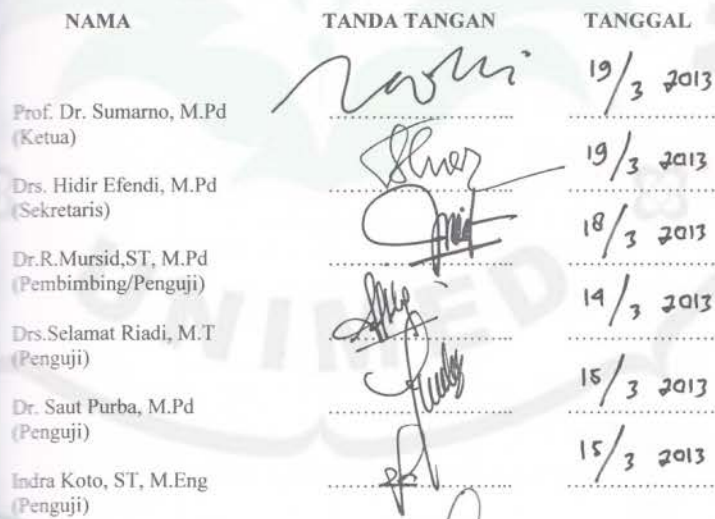 NAMA TANDA TANGAN TANGGAL
19/3 2013
Prof. Dr. Sumarno, M.Pd
(Ketua)
19/3 2013
Drs. Hidir Efendi, M.Pd
(Sekretaris)
18/3 2013
Dr.R.Mursid,ST, M.Pd
(Pembimbing/Penguji)
14/3 2013
Drs.Selamat Riadi, M.T
(Penguji)
15/3 2013
Dr. Saut Purba, M.Pd
(Penguji)
15/3 2013
Indra Koto, ST, M.Eng
(Penguji)
UNIMED